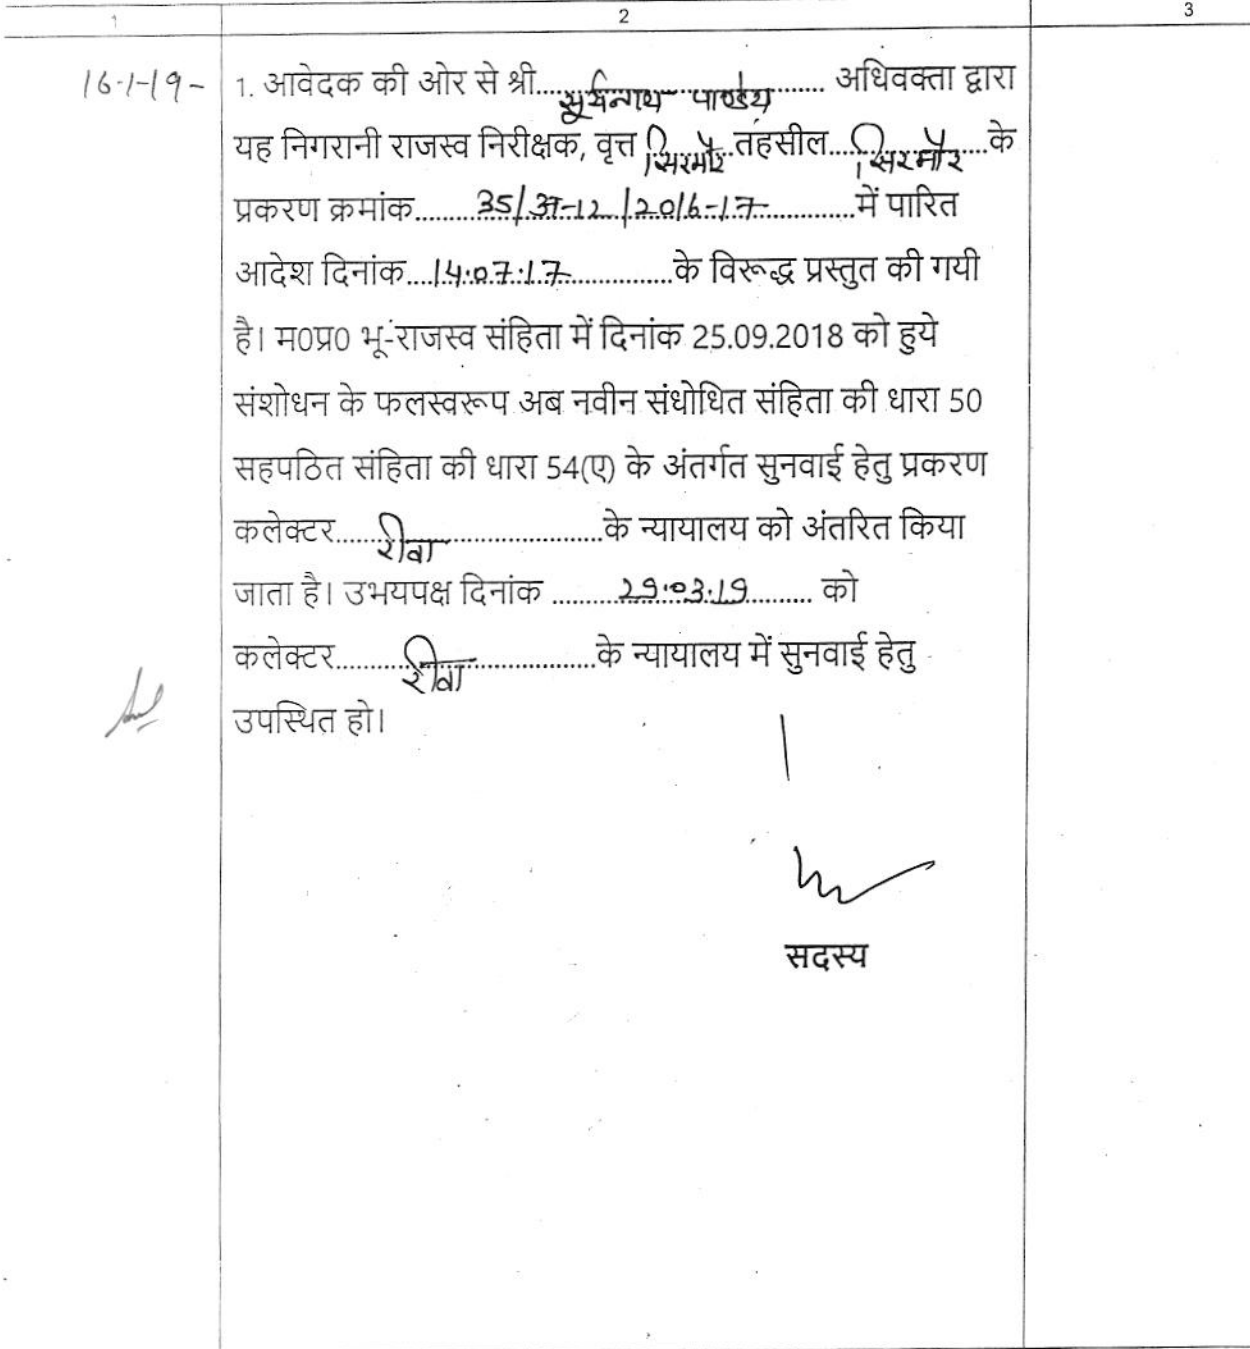 1 2 3
16-1-19- 1. आवेदक की ओर से श्री....सूर्यनाथ पाण्डेय........ अधिवक्ता द्वारा
यह निगरानी राजस्व निरीक्षक, वृत्त सिरमौर..तहसील....सिरमौर....के
प्रकरण क्रमांक........35/अ-12/2016-17............में पारित
आदेश दिनांक....14.07.17..............के विरूद्ध प्रस्तुत की गयी
है। म0प्र0 भू-राजस्व संहिता में दिनांक 25.09.2018 को हुये
संशोधन के फलस्वरूप अब नवीन संधोधित संहिता की धारा 50
सहपठित संहिता की धारा 54(ए) के अंतर्गत सुनवाई हेतु प्रकरण
कलेक्टर......रीवा....................के न्यायालय को अंतरित किया
जाता है। उभयपक्ष दिनांक .........29.03.19......... को
कलेक्टर.........रीवा.................के न्यायालय में सुनवाई हेतु
उपस्थित हो।
सदस्य